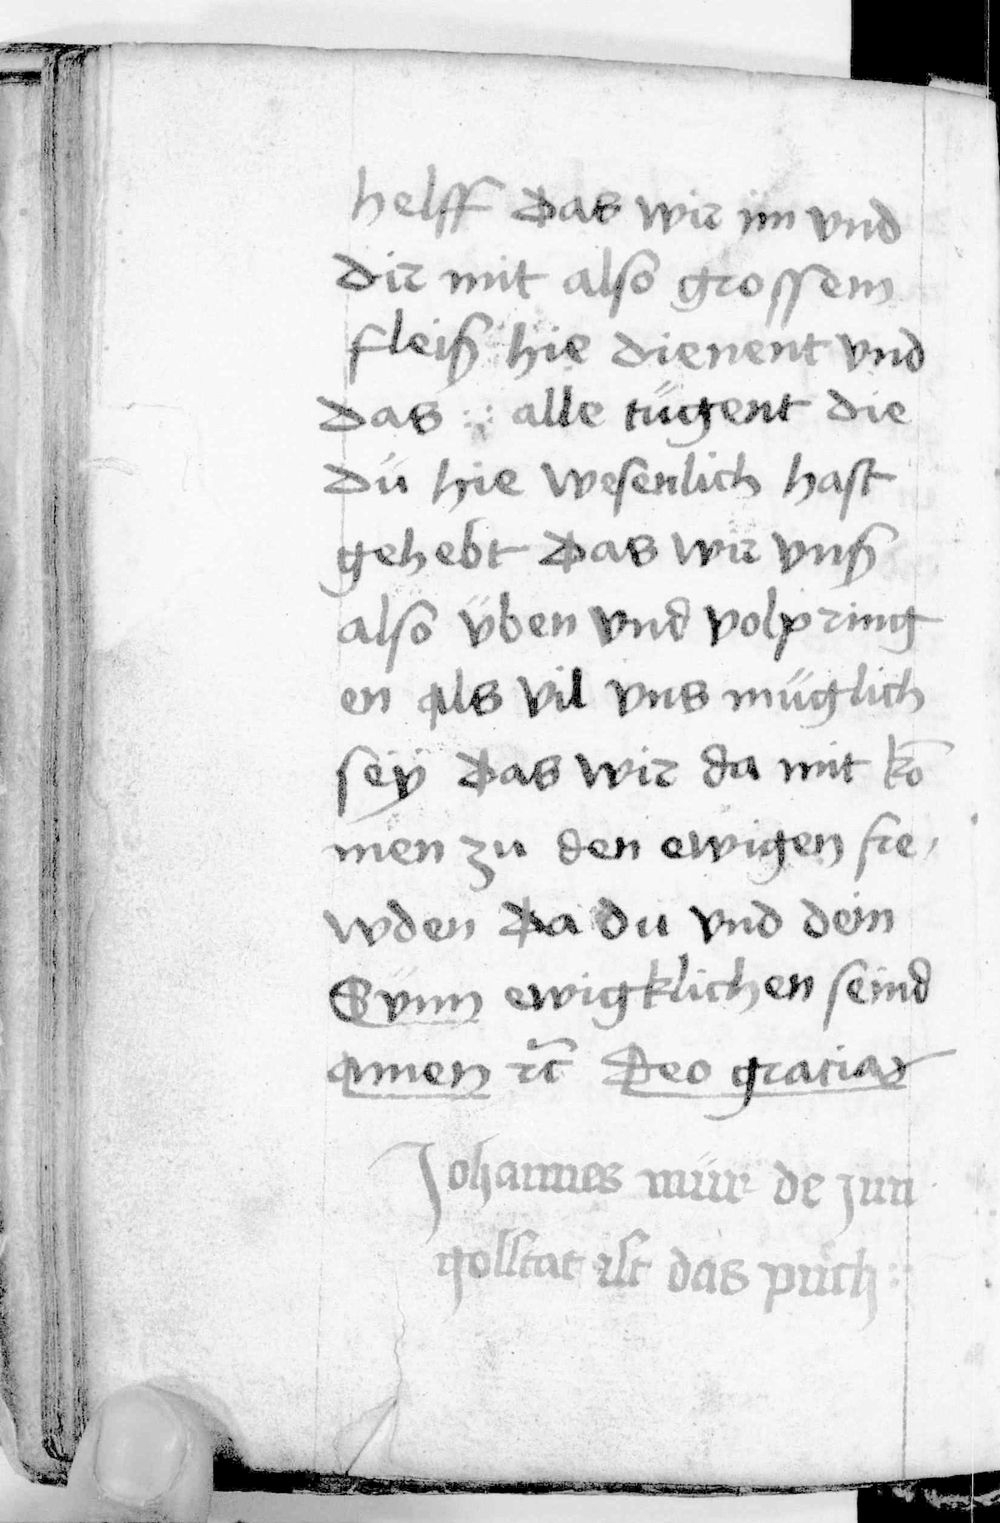 helff das wir im vnd
dir mit also grossem
fleiß hie dienent vnd
das :: alle tugent die
dü hie wesenlich hast
gehebt das wir vnß
also üben vnd volpring
en Als vil vns müglich
seÿ das wir da mit kō
men zu den ewigen fre
wden da du vnd dein
Sünn ewigklichen seind
Amen ꝛc̄ Deo gracias
Johannes mür de jun
golstat ist das püch :